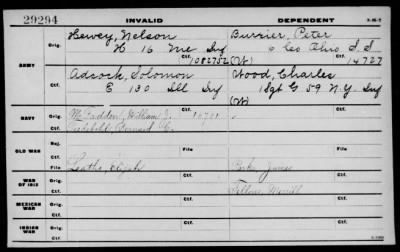 29294 INVALID DEPENDENT 3-26-2
ARMY
Orig. Hewey, Nelson Burrier, Peter
H 16 Me Inf Co Ohio S.S
Ctf. 1082752 (W) 14727
Orig. Adcock, Solomon Wood, Charles
E 130 Ill Inf 1 Sgt G 59 N.Y Inf
Ctf. (W)
NAVY
Orig. McFadden, William J. 10701
Ctf. Bernard C.
File File
OLD WAR
Rej.
Ctf.
File Leathe, Elijah
WAR OF 1812
Orig. James
Ctf. Merrill
MEXICAN WAR
Orig.
Ctf. Ctf.
INDIAN WAR
Orig.
Ctf. Ctf.